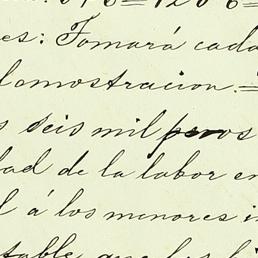 es: Tomará cada
demostracion.=
s seis mil pesos
dad de la labor en
l á los menores i
table que los